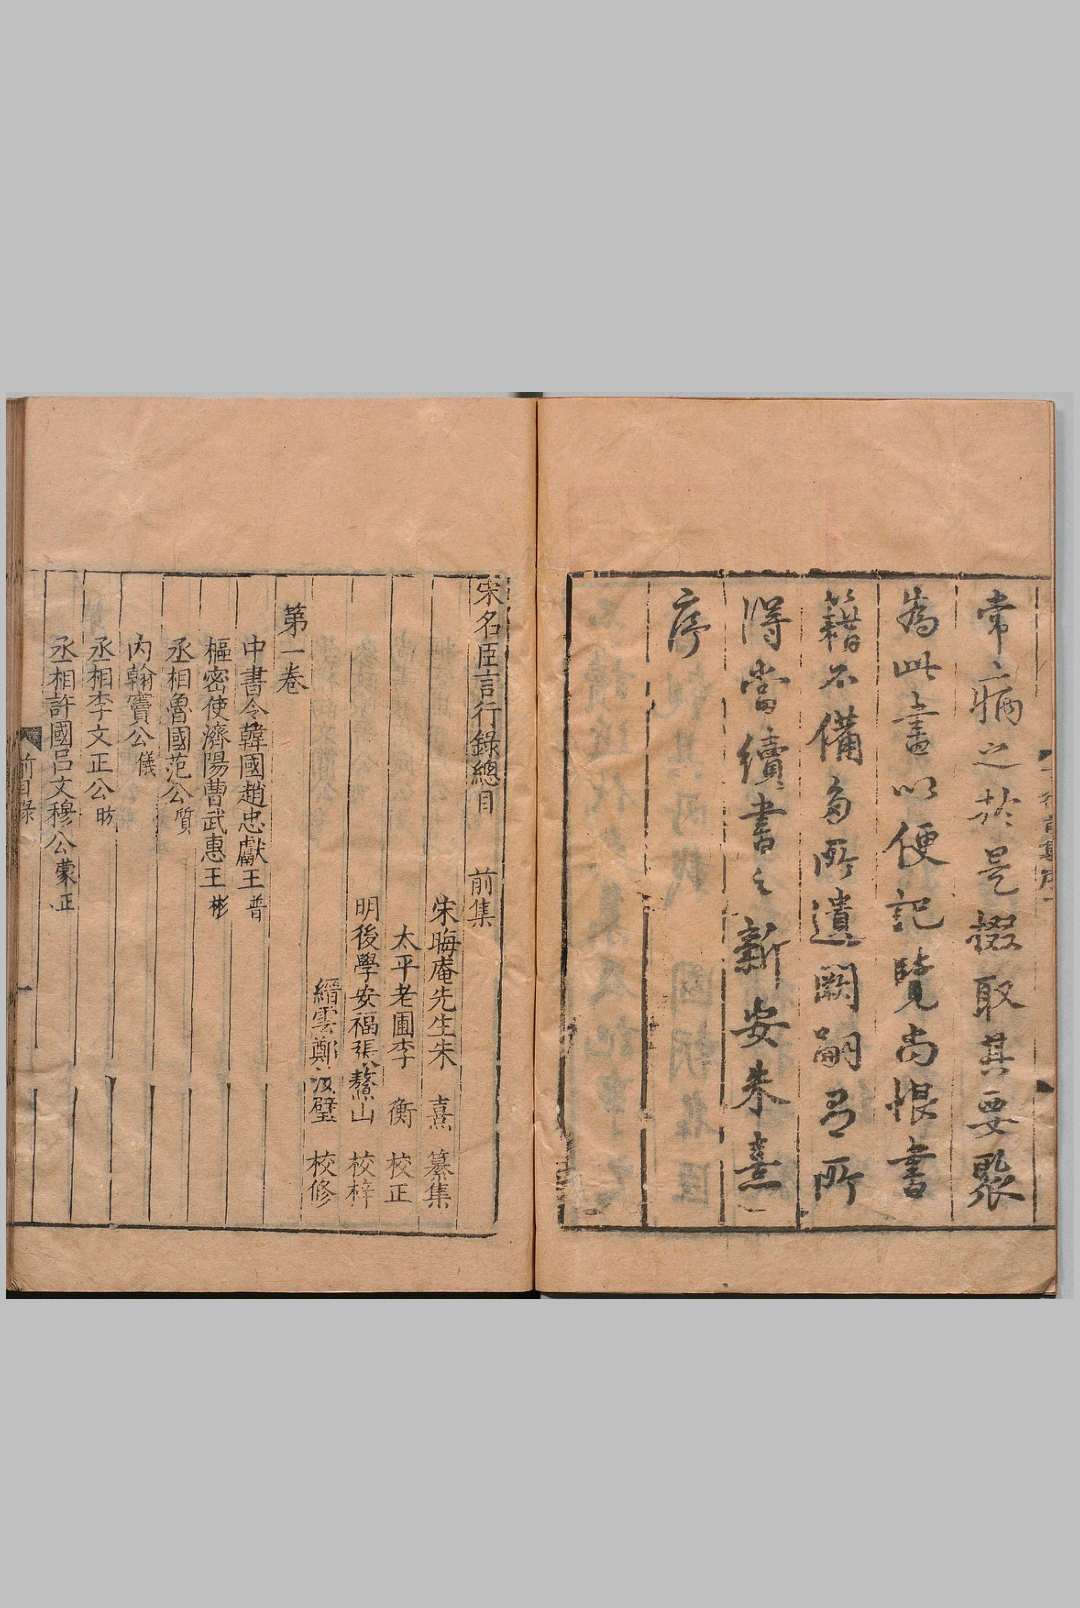 常病之於是掇取其要聚
為此書以便記覽尚恨書
籍不備多所遺闕嗣有所
得當續書之新安朱熹
序
宋名臣言行錄總目 前集
宋晦庵先生朱 熹 纂集
太平老圃李 衡 校正
明後學安福張鰲山 校梓
縉雲鄭汝璧 校修
第一卷
中書令韓國趙忠獻王普
樞密使濟陽曹武惠王彬
丞相魯國范公質
內翰竇公儀
丞相李文正公昉
丞相許國呂文穆公蒙正
前目錄 一